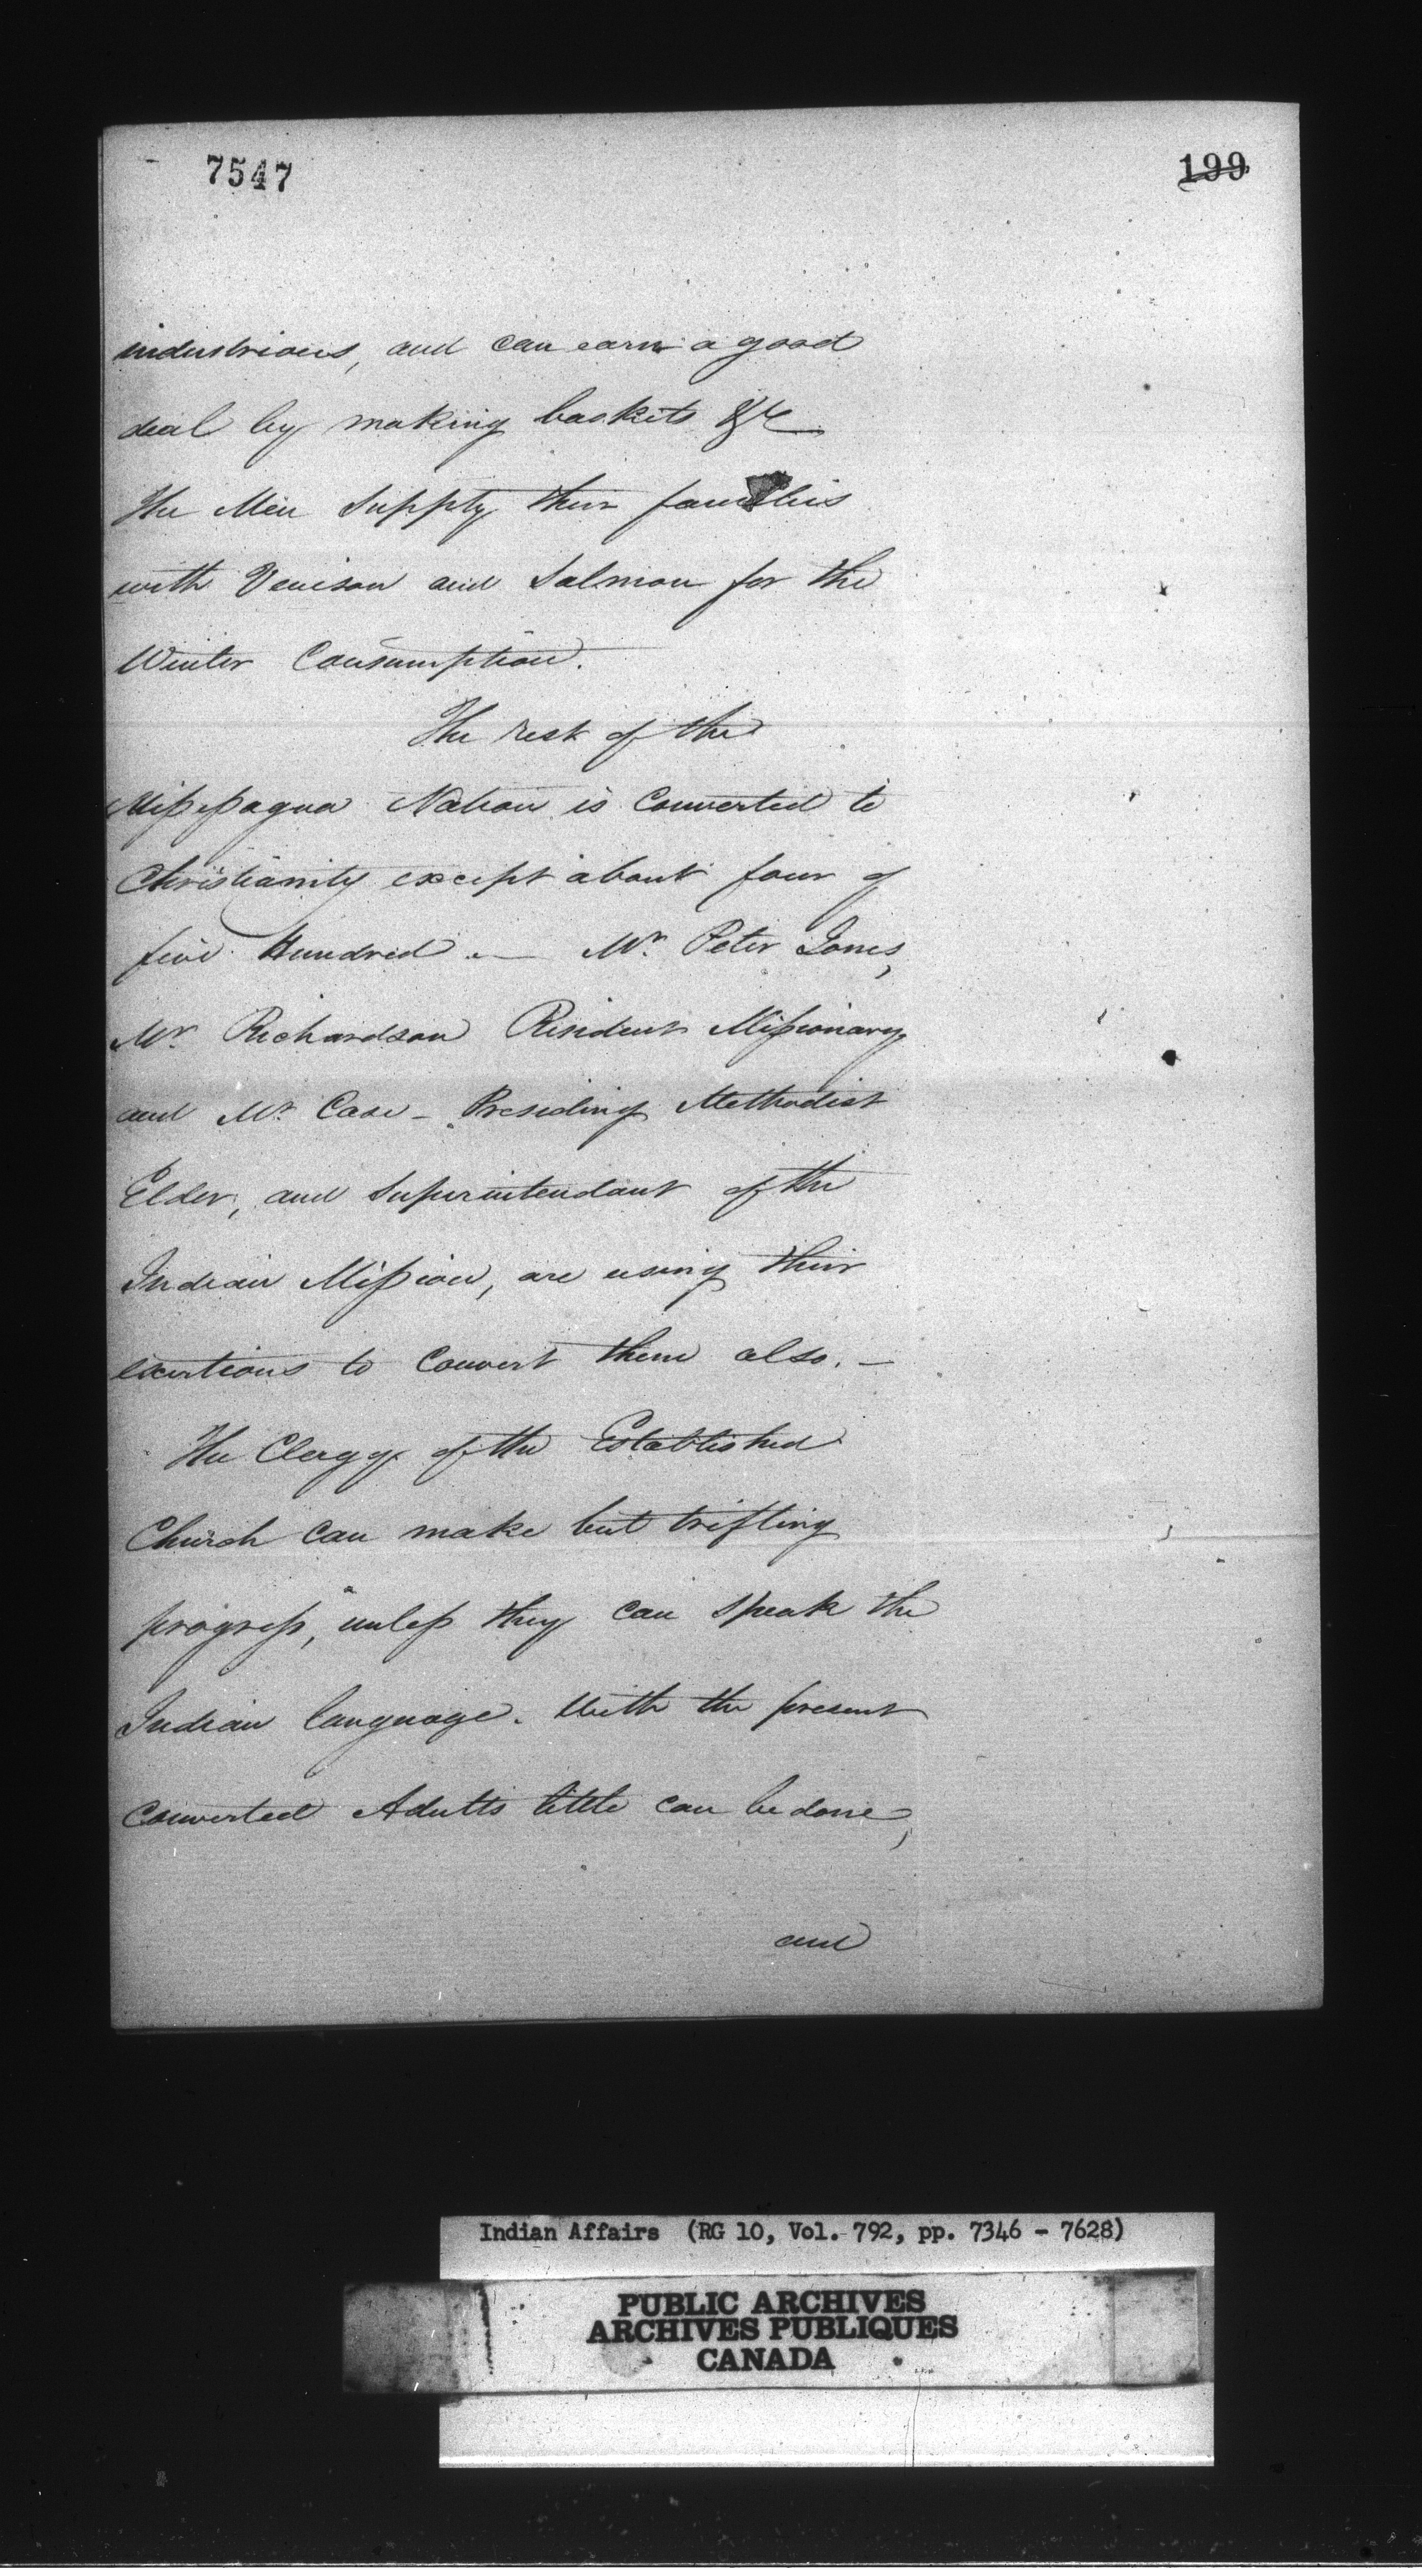 7547
199
industrious, and can earn a good
deal by making baskets &c
The Men Supply their families
with Venison and Salmon for the
Winter Consumption.
The rest of the
Missisagua Nation is Converted to
Christianity except about four or
five Hundred. — Mr. Peter Jones,
Mr. Richardson Resident Missionary
and Mr. Case - Presiding Methodist
Elder, and Superintendant of the
Indian Mission, are using their
exertions to Convert them also. —
The Clergy of the Established
Church can make but trifling
progress, unless they can speak the
Indian language. With the present
Converted Adults little can be done,
and
Indian Affairs (RG 10, Vol. 792, pp. 7346 - 7628)
PUBLIC ARCHIVES
ARCHIVES PUBLIQUES
CANADA